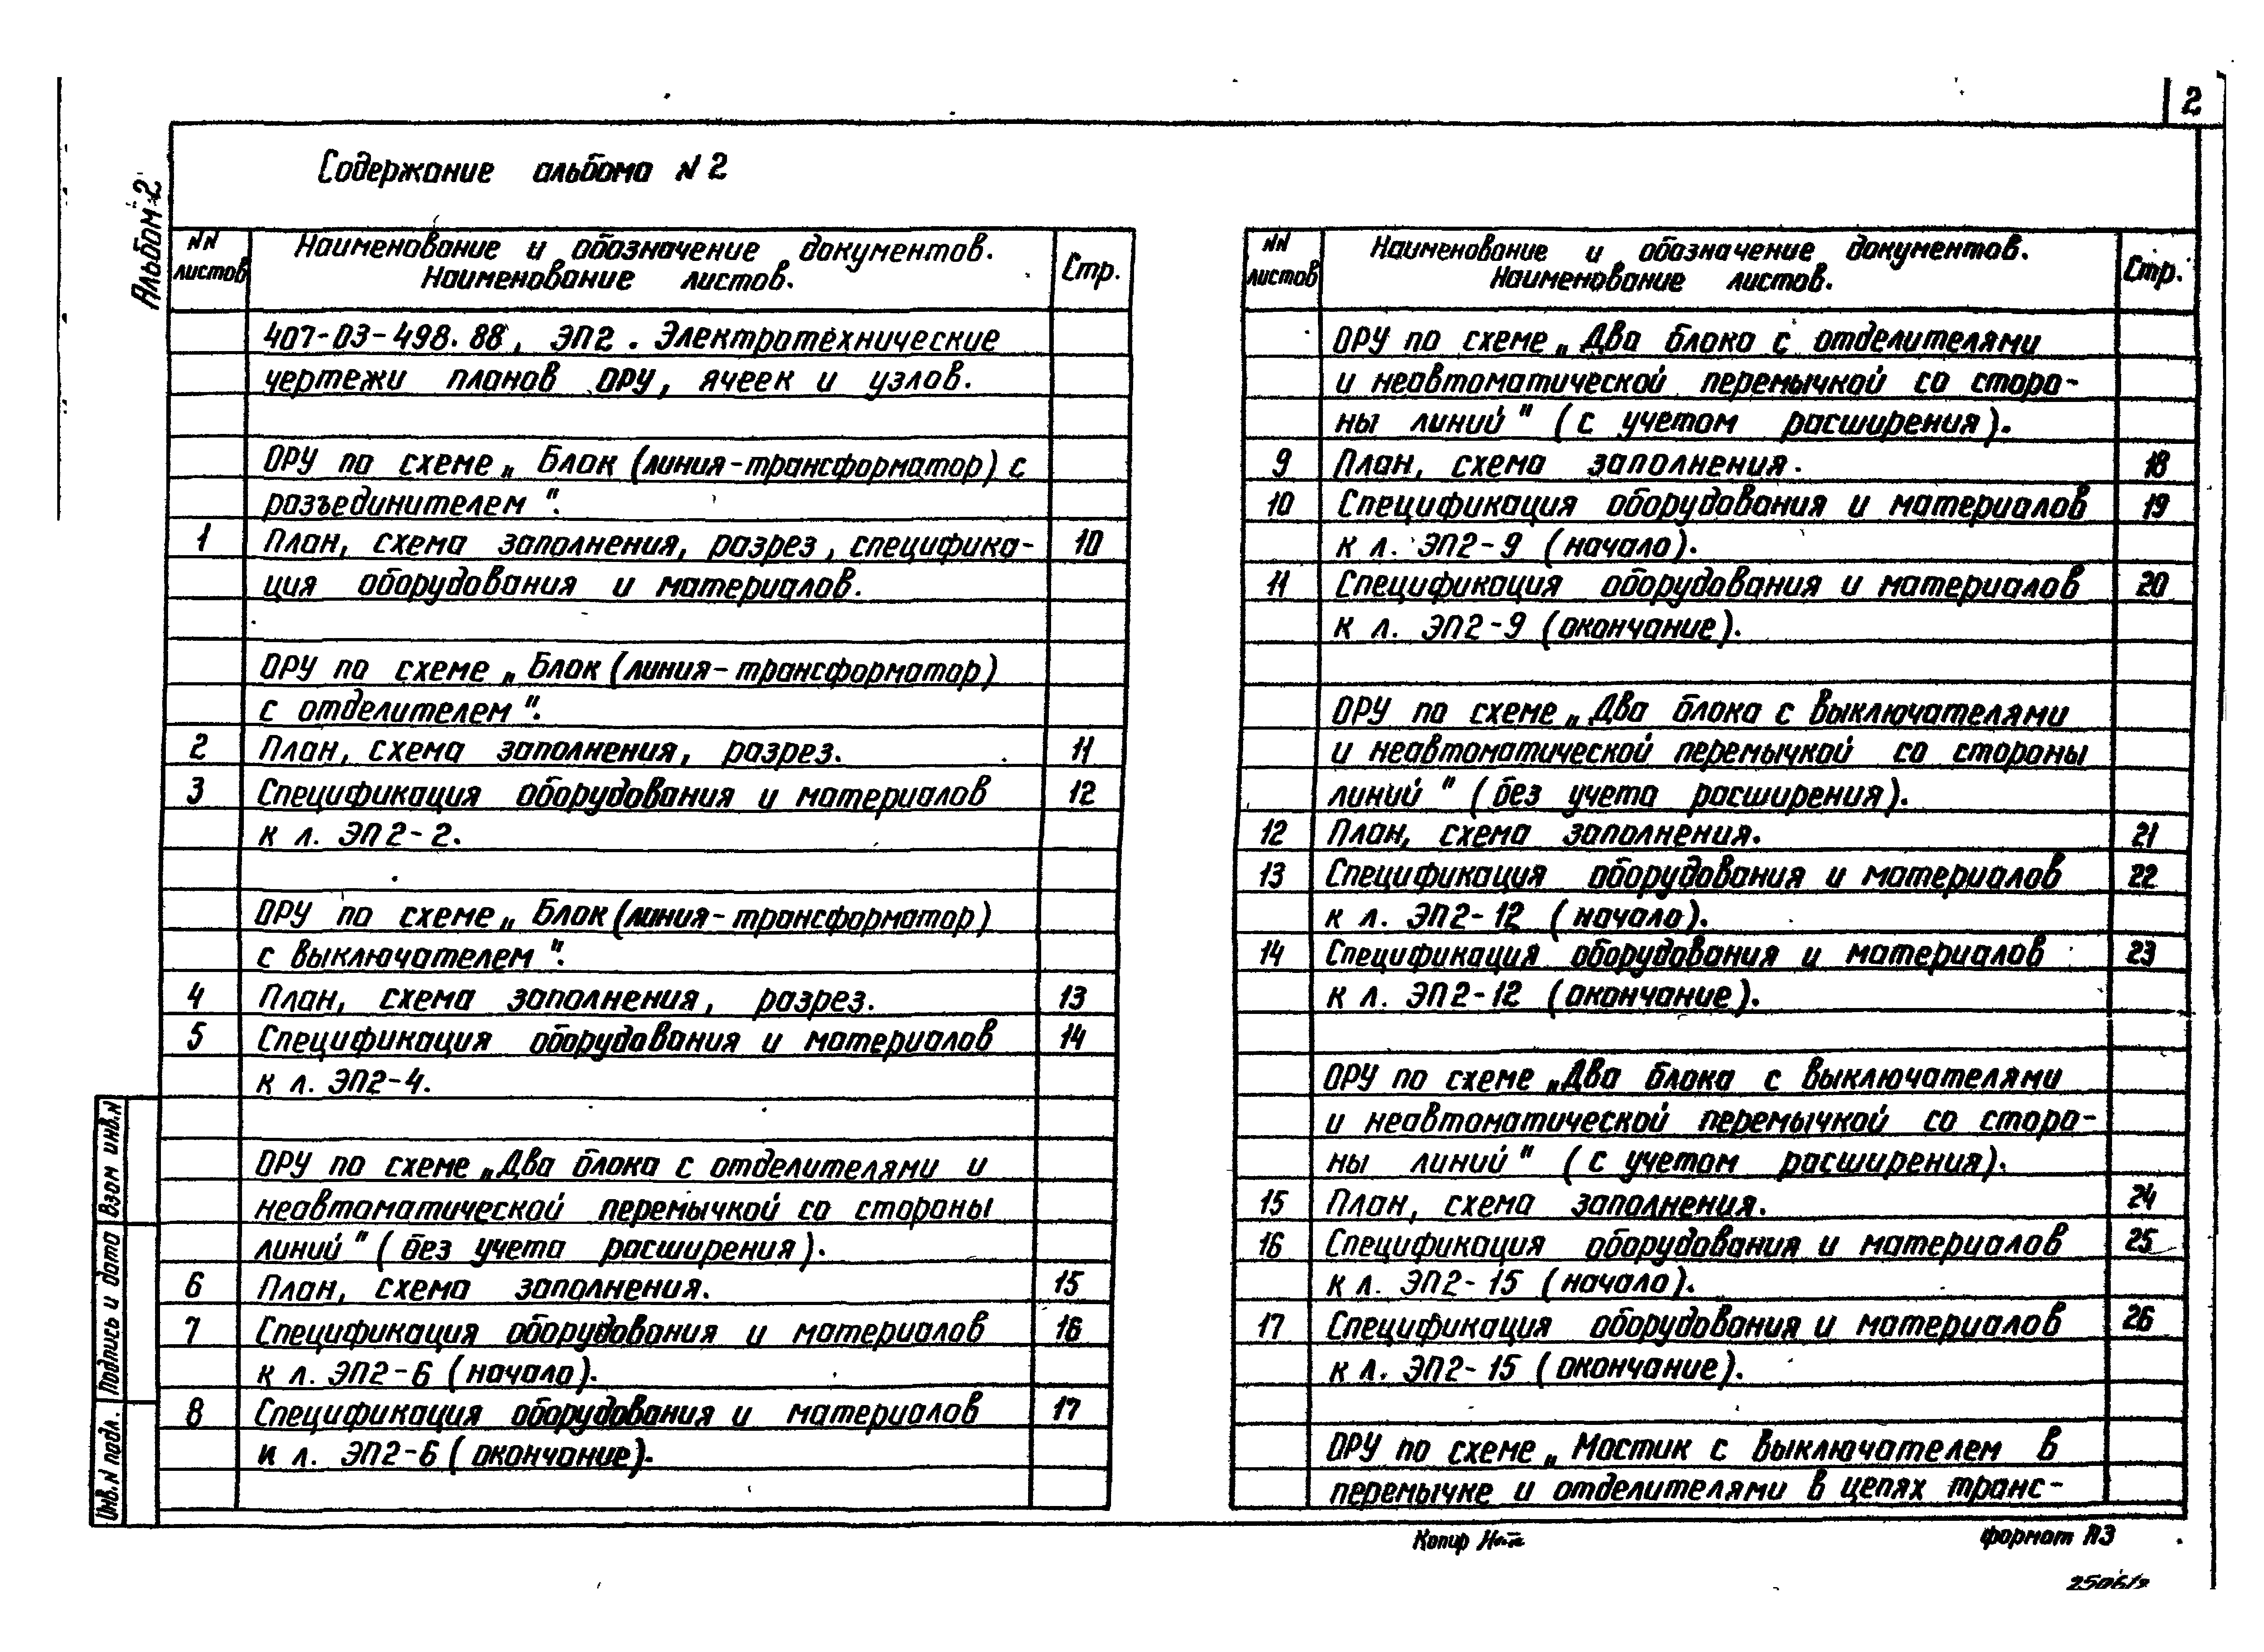 2
Альбом 2
Содержание альбома N 2
NN листов
Наименование и обозначение документов.
Наименование листов.
Стр.
407-03-498.88, ЭП2. Электротехнические
чертежи планов ОРУ, ячеек и узлов.
ОРУ по схеме „Блок (линия-трансформатор) с
разъединителем".
1 План, схема заполнения, разрез, специфика- 10
ция оборудования и материалов.
ОРУ по схеме „Блок (линия-трансформатор)
с отделителем".
2 План, схема заполнения, разрез. 11
3 Спецификация оборудования и материалов 12
к л. ЭП2-2.
ОРУ по схеме „Блок (линия-трансформатор)
с выключателем".
4 План, схема заполнения, разрез. 13
5 Спецификация оборудования и материалов 14
к л. ЭП2-4.
ОРУ по схеме „Два блока с отделителями и
неавтоматической перемычкой со стороны
линий" (без учета расширения).
6 План, схема заполнения. 15
7 Спецификация оборудования и материалов 16
к л. ЭП2-6 (начало).
8 Спецификация оборудования и материалов 17
к л. ЭП2-6 (окончание).
NN листов
Наименование и обозначение документов.
Наименование листов.
Стр.
ОРУ по схеме „Два блока с отделителями
и неавтоматической перемычкой со сторо-
ны линий" (с учетом расширения).
9 План, схема заполнения. 18
10 Спецификация оборудования и материалов 19
к л. ЭП2-9 (начало).
11 Спецификация оборудования и материалов 20
к л. ЭП2-9 (окончание).
ОРУ по схеме „Два блока с выключателями
и неавтоматической перемычкой со стороны
линий" (без учета расширения).
12 План, схема заполнения. 21
13 Спецификация оборудования и материалов 22
к л. ЭП2-12 (начало).
14 Спецификация оборудования и материалов 23
к л. ЭП2-12 (окончание).
ОРУ по схеме „Два блока с выключателями
и неавтоматической перемычкой со сторо-
ны линий" (с учетом расширения).
15 План, схема заполнения. 24
16 Спецификация оборудования и материалов 25
к л. ЭП2-15 (начало).
17 Спецификация оборудования и материалов 26
к л. ЭП2-15 (окончание).
ОРУ по схеме „Мостик с выключателем в
перемычке и отделителями в цепях транс-
Взам инв.N
Подпись и дата
Инв.N подл.
Копир
формат А3